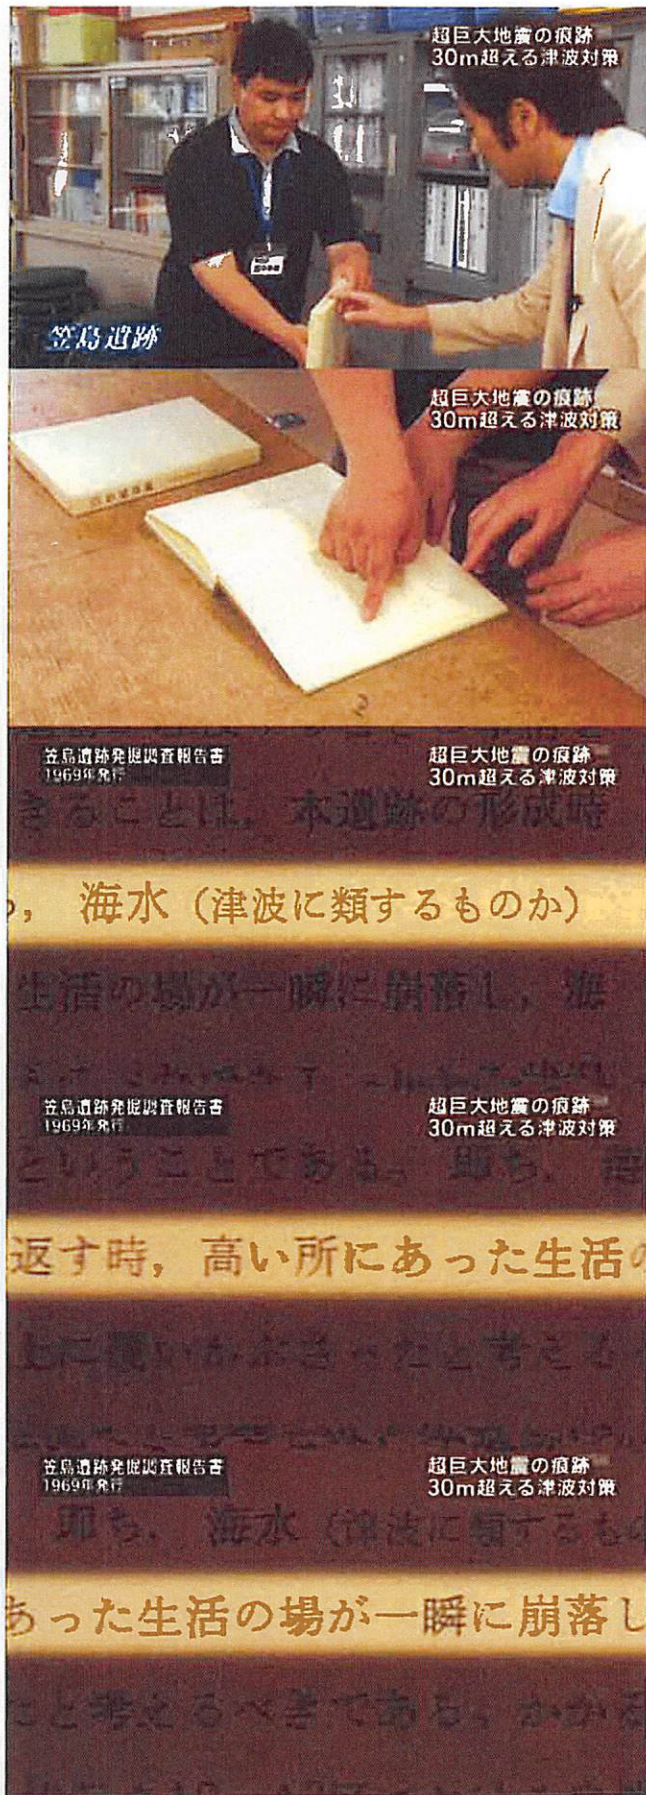 超巨大地震の痕跡
30m超える津波対策
笠島遺跡
超巨大地震の痕跡
30m超える津波対策
笠島遺跡発掘調査報告書
1969年発行
超巨大地震の痕跡
30m超える津波対策
きることは、本遺跡の形成時
, 海水（津波に類するものか）
生活の場が一瞬に崩落し, 海
笠島遺跡発掘調査報告書
1969年発行
超巨大地震の痕跡
30m超える津波対策
ということである。即ち, 海
返す時, 高い所にあった生活の
上に覆いかぶさったと考える
笠島遺跡発掘調査報告書
1969年発行
超巨大地震の痕跡
30m超える津波対策
即ち, 海水（津波に類するもの
あった生活の場が一瞬に崩落し
たと考えるべきである。かかる